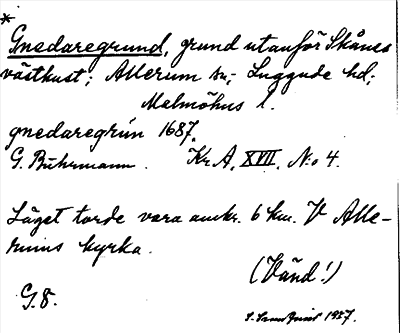 *
Gnedaregrund, grund utanför Skånes
västkust; Allerum sn; Luggude hd;
Malmöhus l.
gnedaregrún 1687.
G. Buhrmann. Kr A, XVII, No 4.
Läget torde vara omkr. 6 km. V Alle-
rums kyrka.
(Vänd!)
G. 8.
1927.